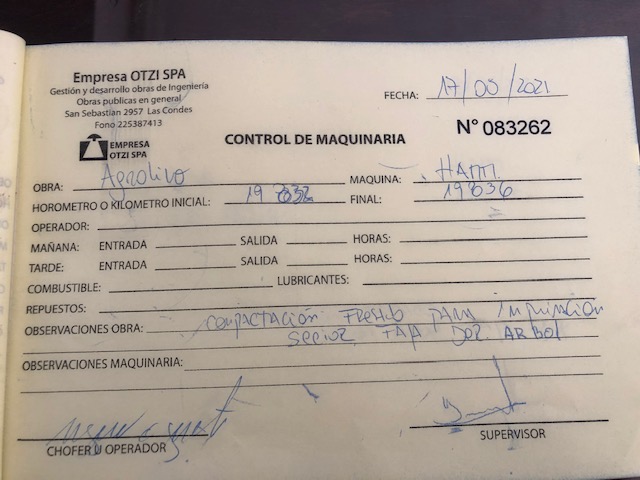 Empresa OTZI SPA
Gestión y desarrollo obras de Ingeniería
Obras publicas en general
San Sebastián 2957 Las Condes
Fono 225387413
FECHA: 17/08/2021
EMPRESA
OTZI SPA
CONTROL DE MAQUINARIA
N° 083262
OBRA: MAQUINA: HAM
HOROMETRO O KILOMETRO INICIAL: FINAL: 19836
OPERADOR:
MAÑANA: ENTRADA SALIDA HORAS:
TARDE: ENTRADA SALIDA HORAS:
COMBUSTIBLE: LUBRICANTES:
REPUESTOS:
OBSERVACIONES OBRA: COMPACTACIÓN
SECTOR TAPA DEL ARBOL
OBSERVACIONES MAQUINARIA:
CHOFER U OPERADOR
SUPERVISOR